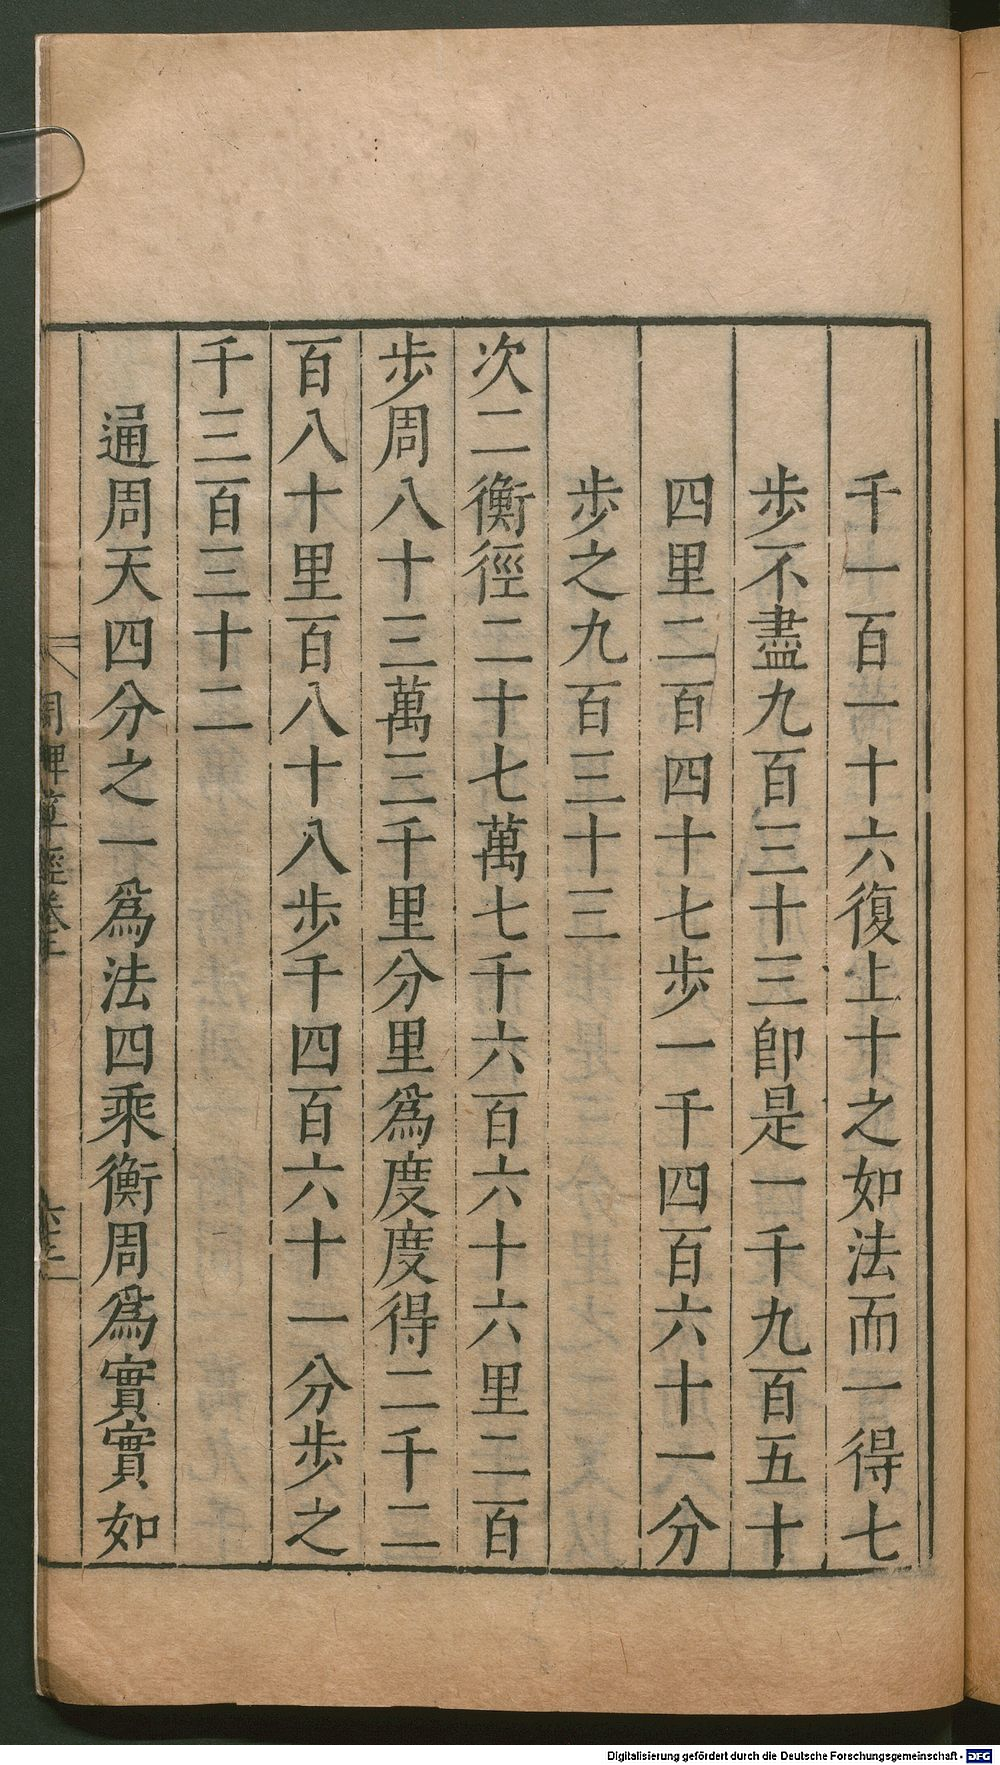 千一百一十六復上十之如法而一得七
步不盡九百三十三卽是一千九百五十
四里二百四十七步一千四百六十一分
步之九百三十三
次二衡徑二十七萬七千六百六十六里二百
步周八十三萬三千里分里爲度度得二千二
百八十里百八十八步千四百六十一分步之
千三百三十二
通周天四分之一爲法四乘衡周爲實實如
周髀算經卷上
Digitalisierung gefördert durch die Deutsche Forschungsgemeinschaft - DFG